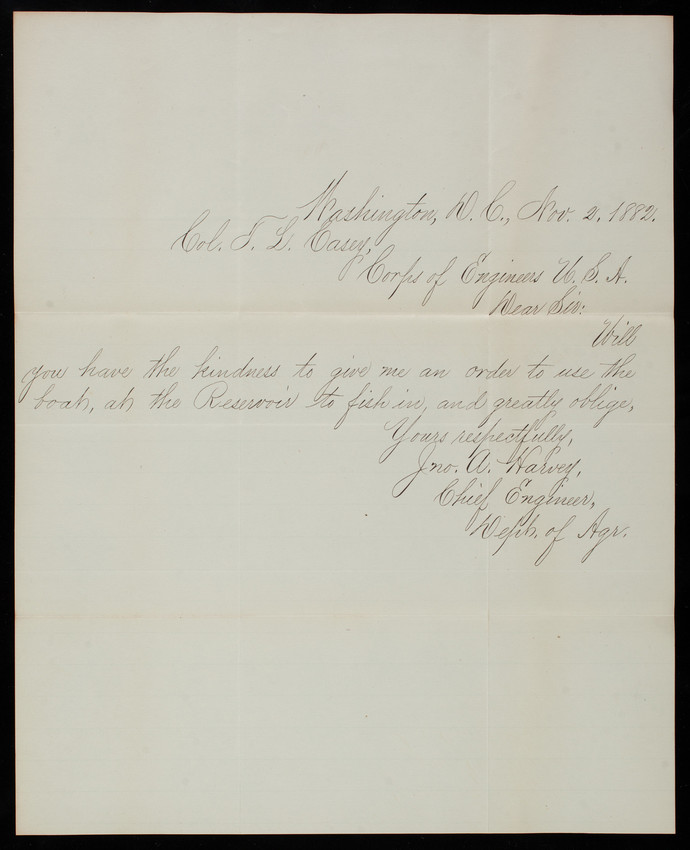 Washington, D. C., Nov. 2, 1882.
Col. T. L. Casey,
Corps of Engineers U. S. A.
Dear Sir:
Will
you have the kindness to give me an order to use the
boat, at the Reservoir to fish in, and greatly oblige,
Yours respectfully,
Jno. A. Harvey,
Chief Engineer,
Dept. of Agr.